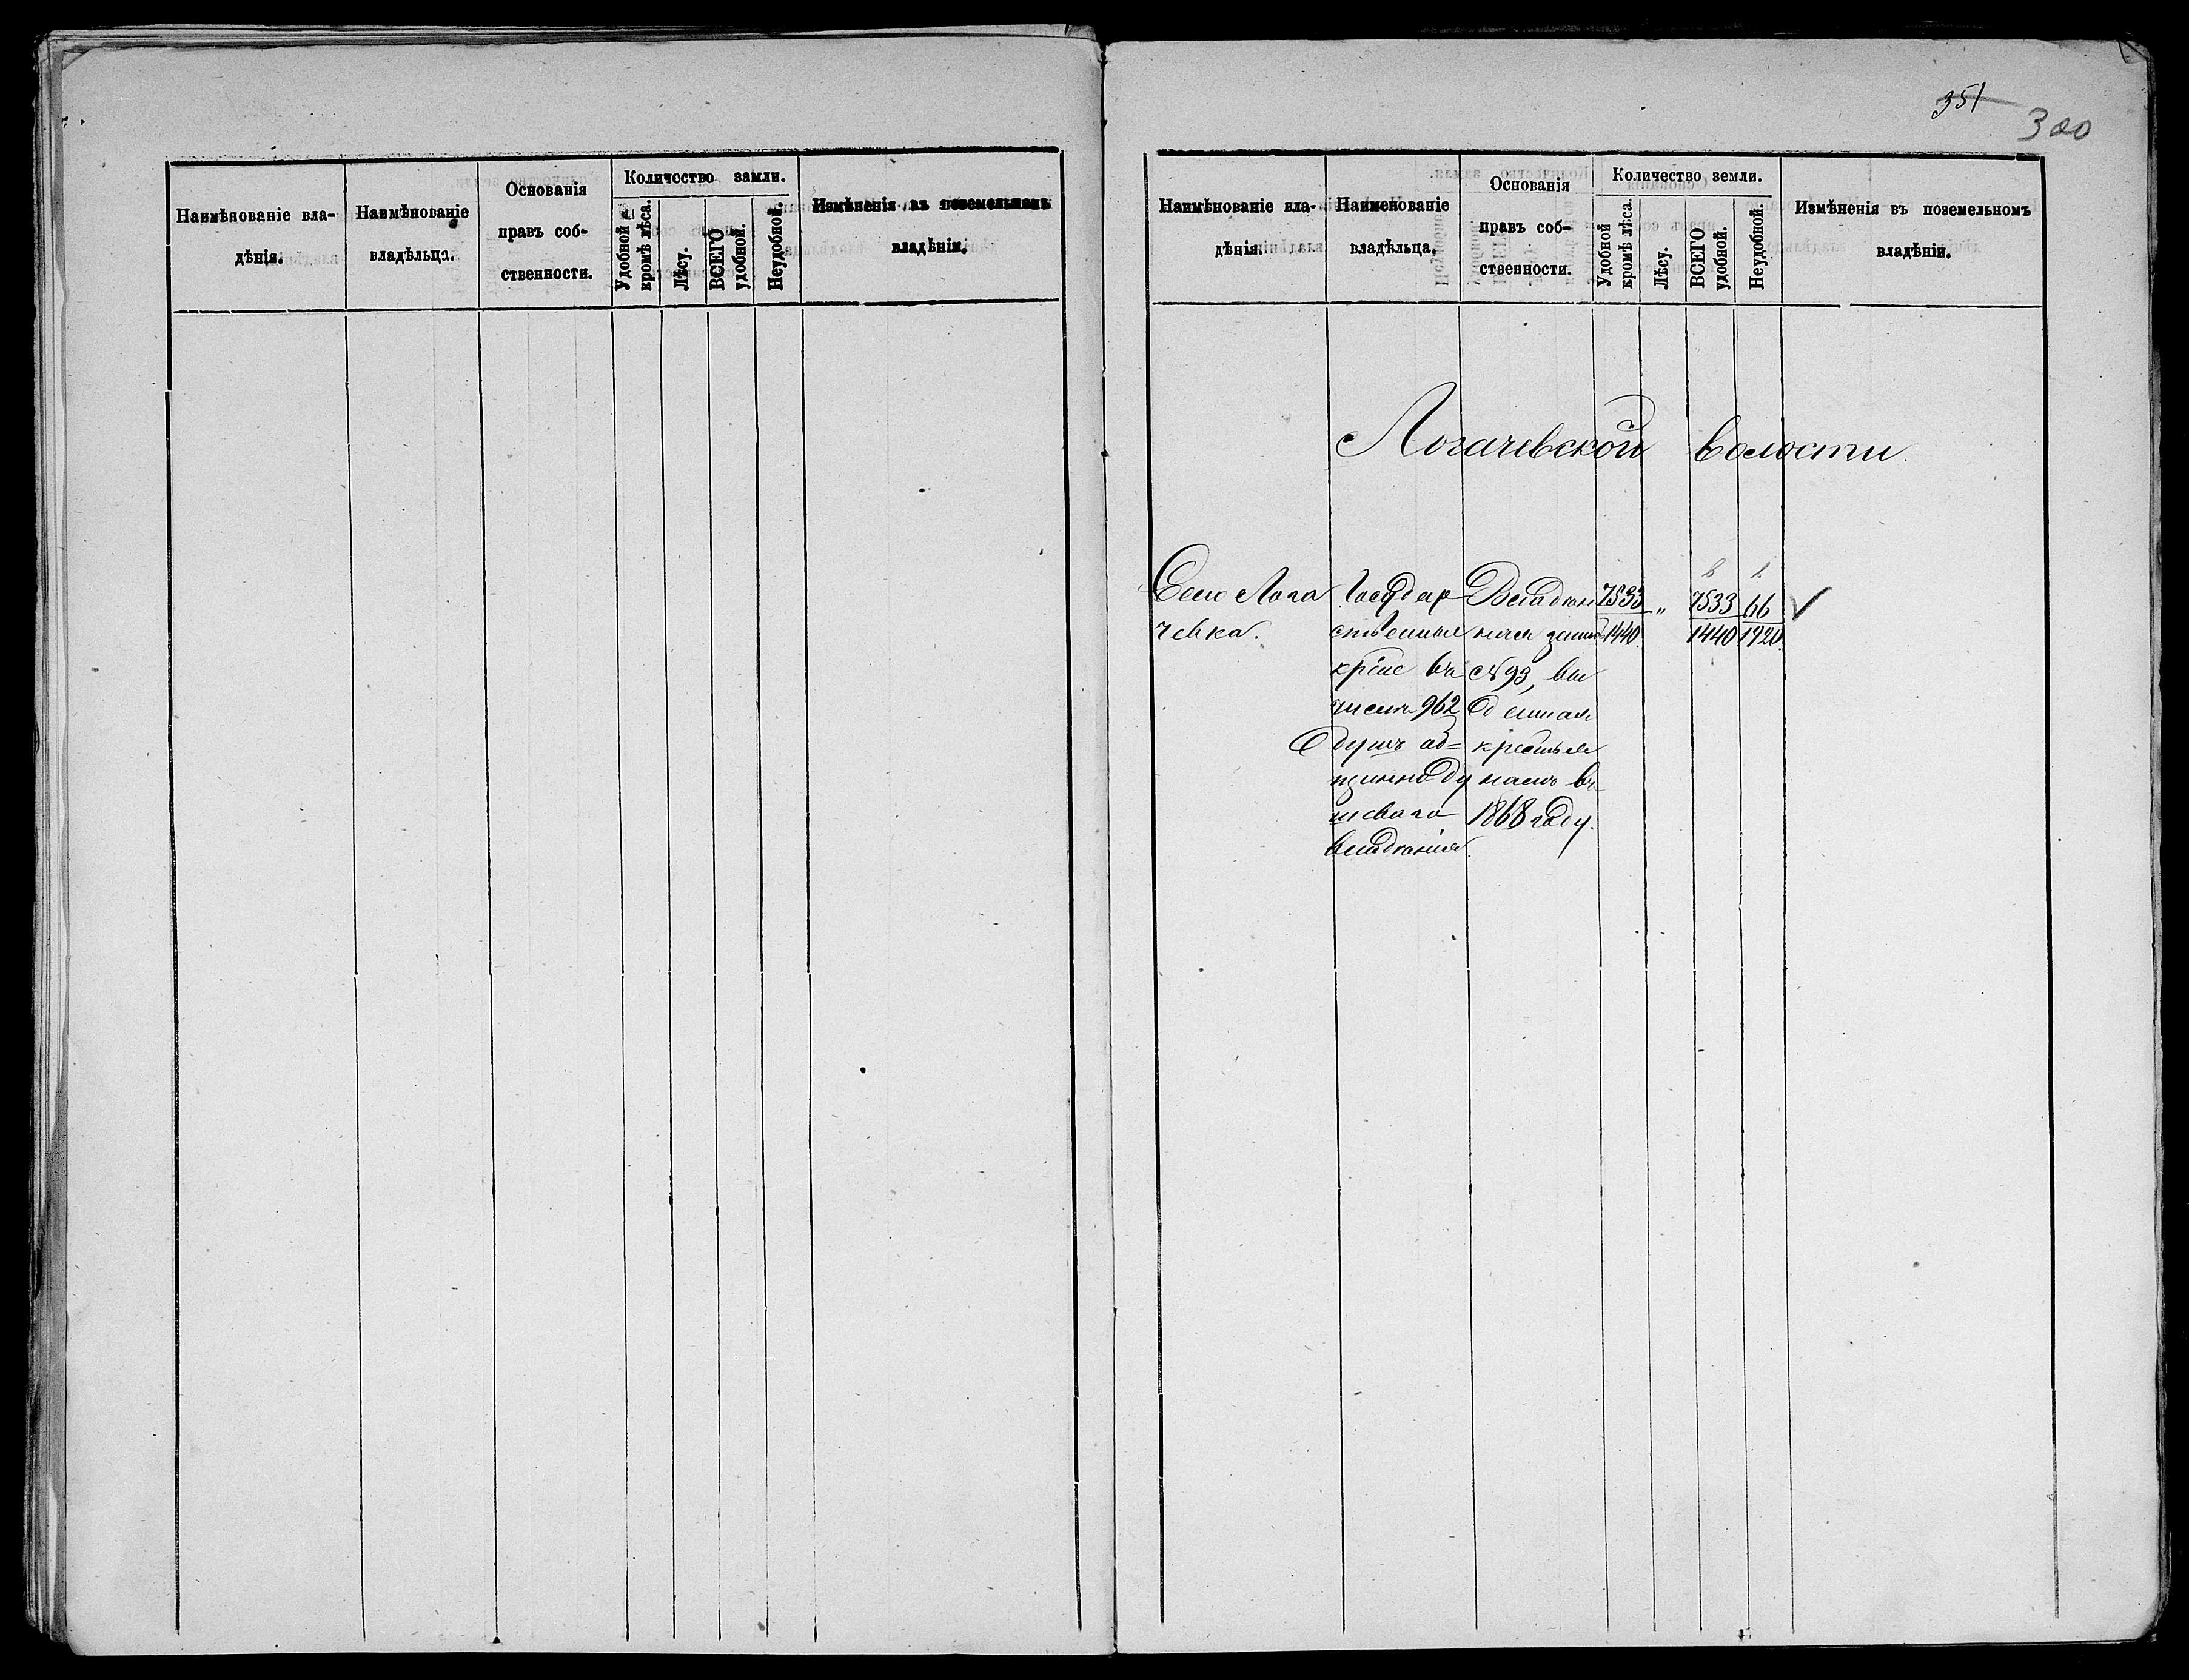 Наимѣнованіе вла-
дѣнія.
Наимѣнованіе
владѣльца.
Основанія
правъ соб-
ственности.
Количество замли.
Удобной
кромѣ лѣса.
Лѣсу.
ВСЕГО
удобной.
Неудобной.
Измѣненія въ поземельномъ
владѣніи.
351
300
Наимѣнованіе вла-
дѣнія.
Наименованіе
владѣльца.
Основанія
правъ соб-
ственности.
Количество земли.
Удобной
кромѣ лѣса.
Лѣсу.
ВСЕГО
удобной.
Неудобной.
Измѣненія въ поземельномъ
владѣніи.
Логачевской волости.
Село Лога
чевка.
Государ
ственные
кр̃іне въ
числѣ 962
душъ об=
щинно ду
шеваго
владѣнія.
Владѣн
ная запись
№ 93, вы
данная
крестья
намъ въ
1868 году.
7533
1440
"
7533
1440
66
1920